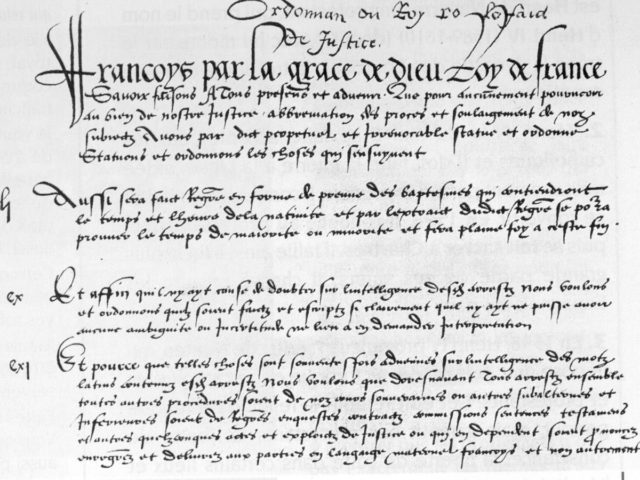 Ordonnan du Roy
De Justice.
Francoys par la grace de dieu Roy de france
Savoir faisons A Tous presens et advenir Que pour aucunement pourveoir
au bien de nostre Justice abbreviation des proces et soulaigement de noz
subiectz Avons par edict perpetuel et Irrevocable statue et ordonne
Statuons et ordonnons les choses qui sensuyvent
Aussi sera faict Regre en forme de preuve des baptesmes qui contiendront
le temps et lheure de la nativite et par lextraict dudict Regre se pourra
prouver le temps de maiorite ou minorite et fera plaine foy a ceste fin.
cx Et affin quil ny ayt cause de doubter sur lintelligence desdz arrestz Nous voulons
et ordonnons quilz soient faictz et escriptz si clairement quil ny ayt ne puisse avoir
aucune ambiguite ou Incertitude ne lieu a en demander Interpretation
cxj Et pource que telles choses sont souventesfois advenues sur lintelligence des motz
latins contenuz esdz arrestz Nous voulons que doresnavant Tous arrestz ensemble
toutes autres procedures soient de noz cours souveraines ou autres subalternes et
Inferieures soient de Regres enquestes contractz commissions sentences testamens
et autres quelzconques actes et exploictz de Justice ou qui en dependent soient prononcez
enregrez et delivrez aux parties en langage maternel francoys et non autrement